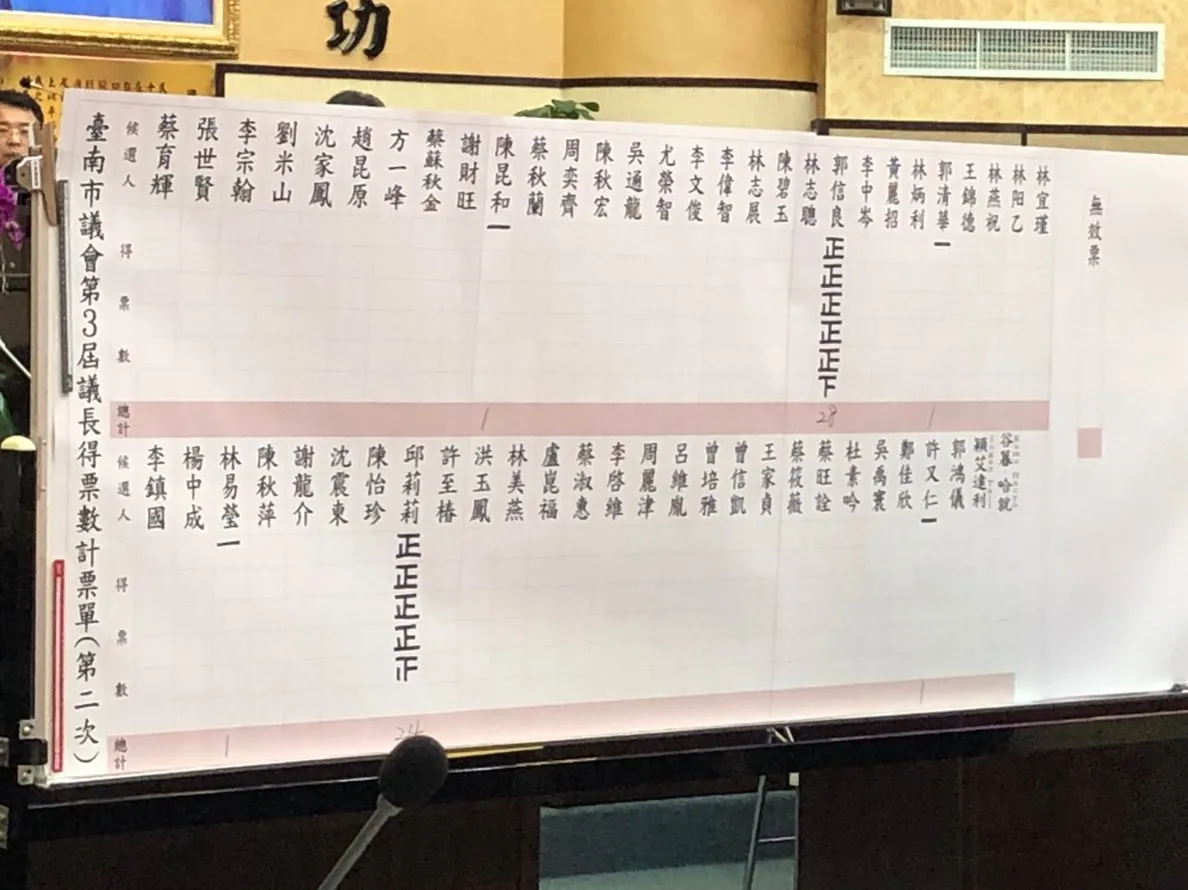 功
臺南市議會第3屆議長得票數計票單(第二次)
候選人
蔡育輝
張世賢
李宗翰
劉米山
沈家鳳
趙昆原
方一峰
蔡蘇秋金
謝財旺
陳昆和
蔡秋蘭
周奕齊
陳秋宏
吳通龍
尤榮智
李文俊
李偉智
林志展
陳碧玉
林志聰
郭信良
李中岑
黃麗招
林炳利
郭清華
王錦德
林燕祝
林阳乙
林宜瑾
得票數
一
正正正正正下
一
總計
1
28
1
候選人
李鎮國
楊中成
林易瑩
陳秋萍
謝龍介
沈震東
陳怡珍
邱莉莉
許至椿
洪玉鳳
林美燕
盧崑福
蔡淑惠
李啓維
周麗津
呂維胤
曾培雅
曾信凱
王家貞
蔡筱薇
蔡旺詮
杜素吟
吳禹寰
鄭佳欣
許又仁
郭鴻儀
穎艾達利
谷暮·哈就
得票數
一
正正正正𠄠
一
總計
1
24
1
無效票